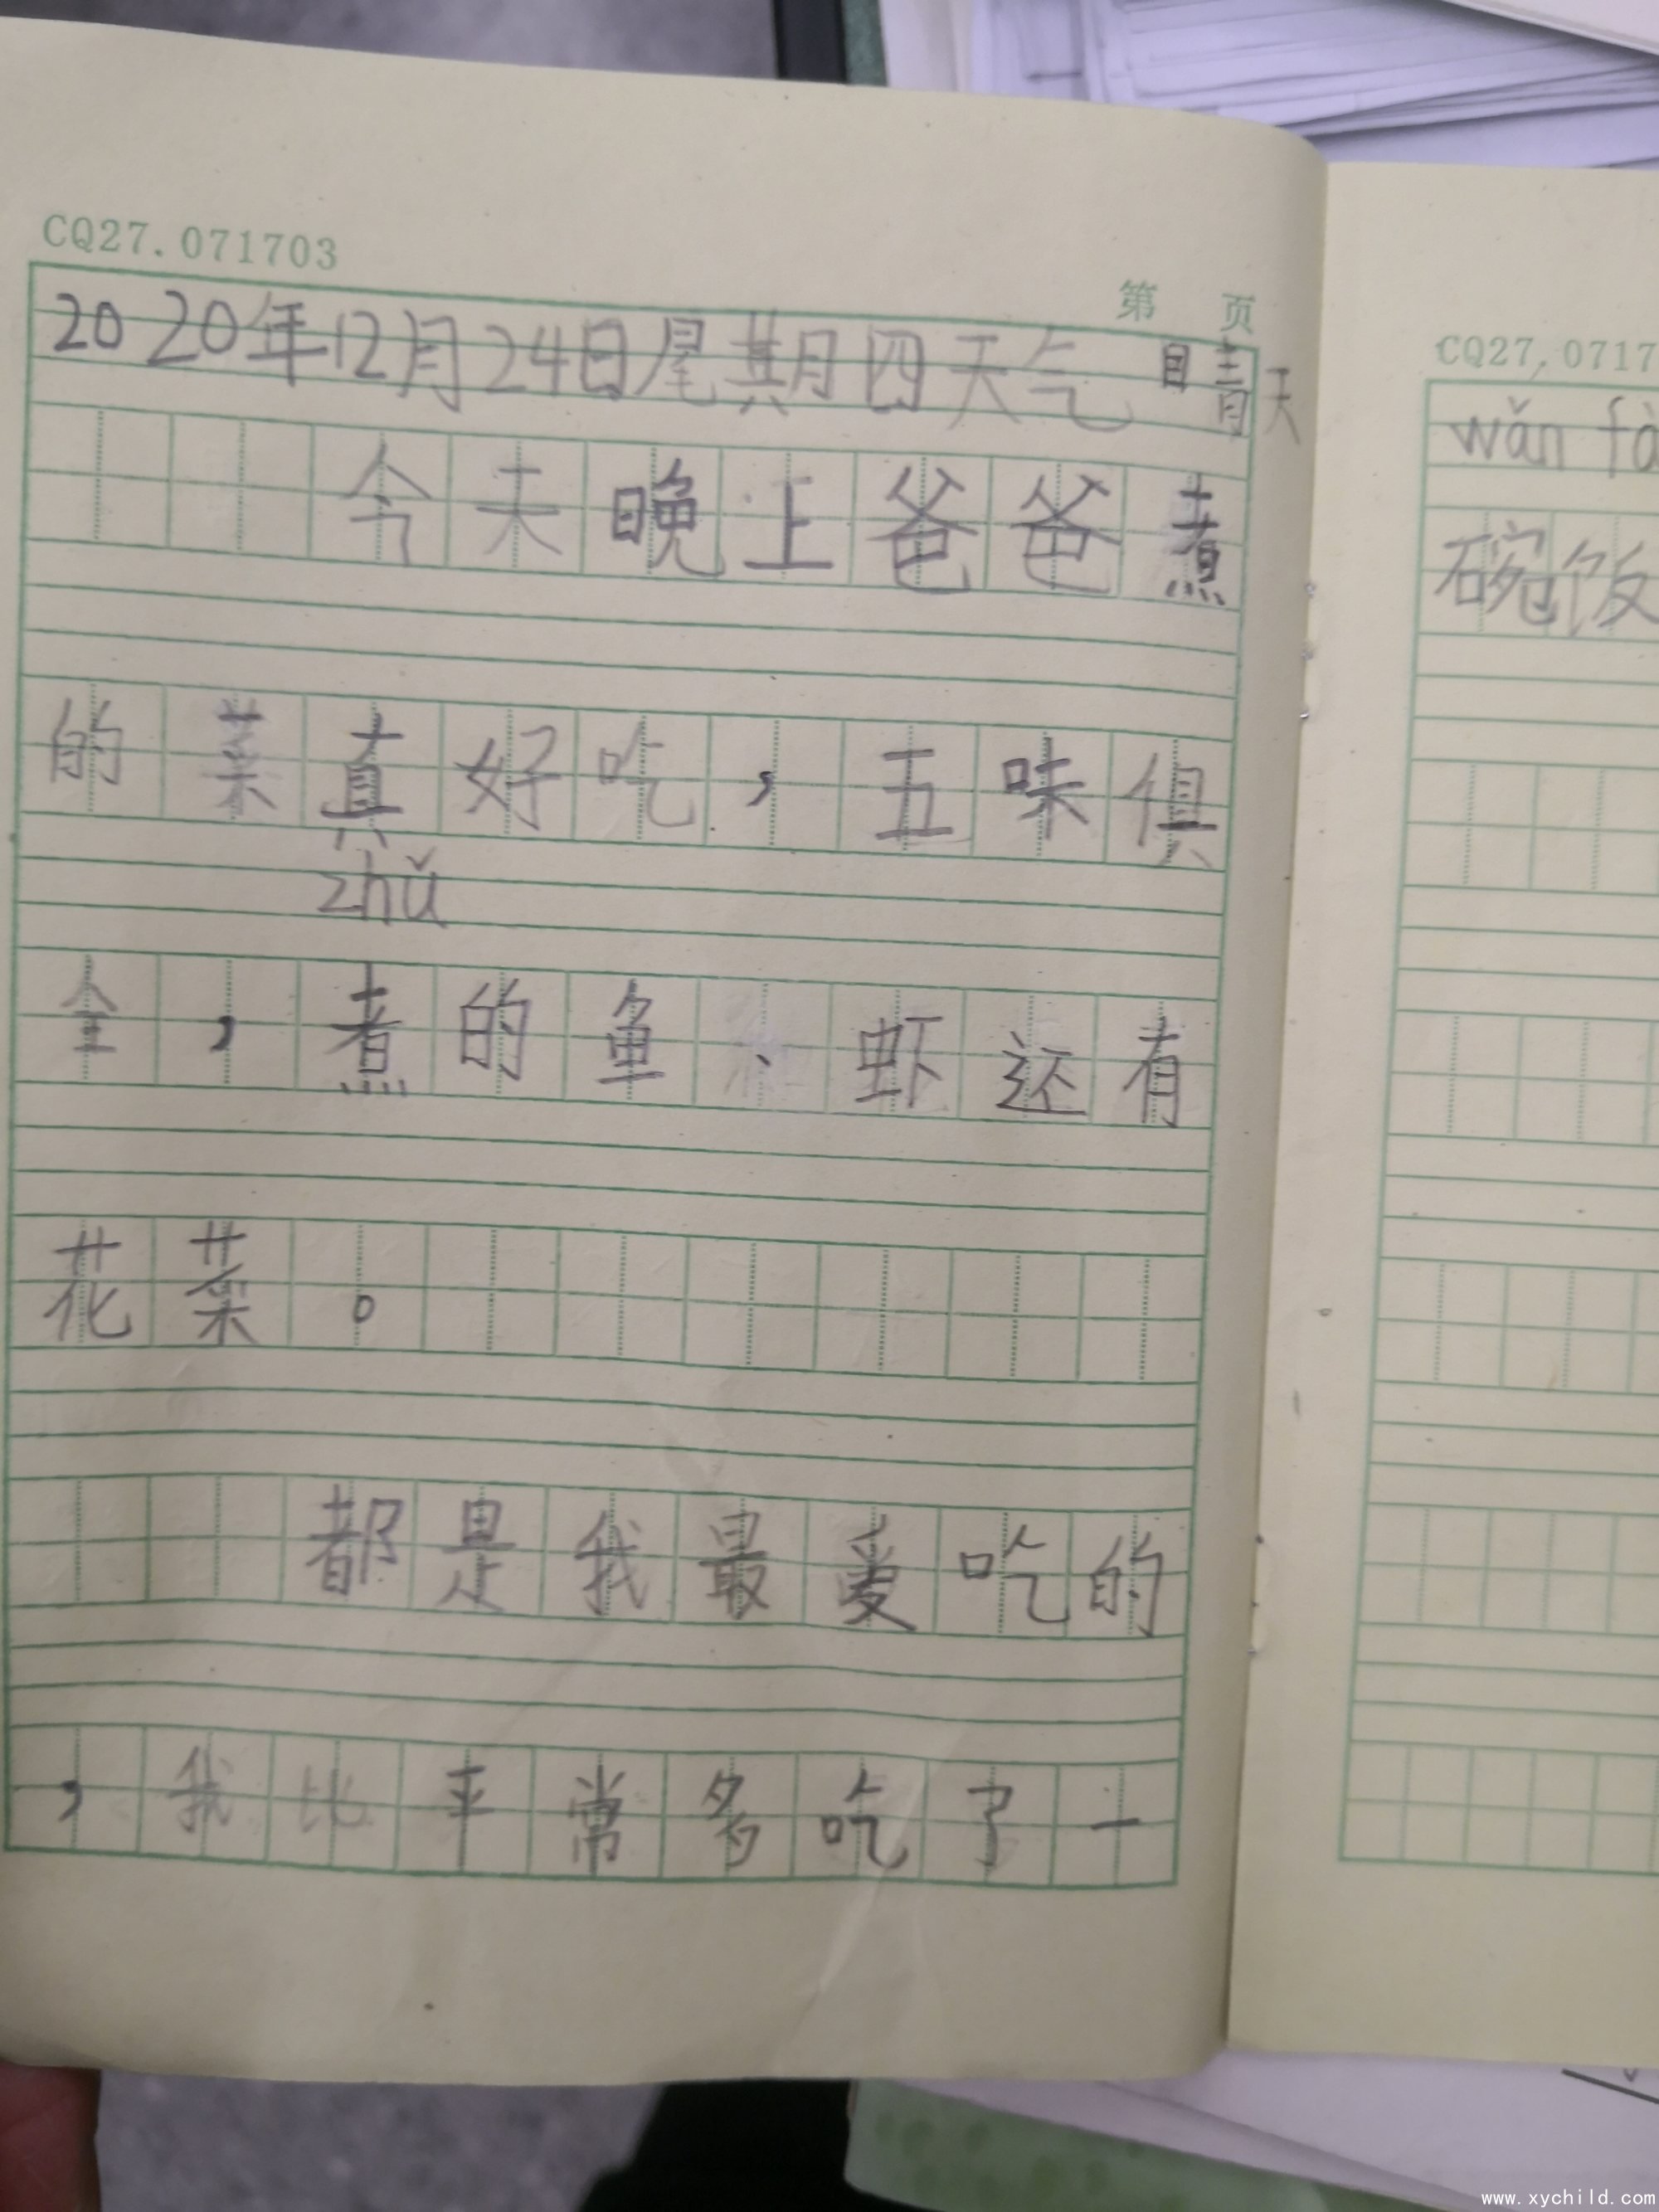 CQ27.071703
第 页
2020年12月24日星期四天气 晴天
今天晚上爸爸煮
的菜真好吃,五味俱
zhǔ
全,煮的鱼、虾还有
花菜。
都是我最爱吃的
,我比平常多吃了一
CQ27.0717
wǎn fà
碗饭
www.xychild.com